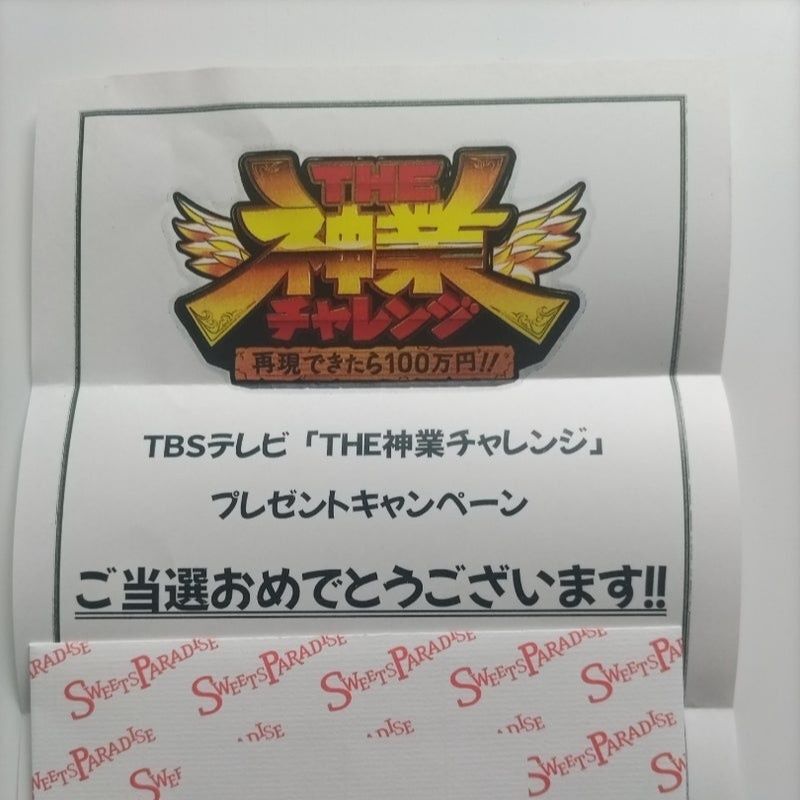 THE
神業
チャレンジ
再現できたら100万円!!
TBSテレビ「THE神業チャレンジ」
プレゼントキャンペーン
ご当選おめでとうございます!!
PARADISE SWEETSPARADISE SWEETSPARADISE SWEETSPARADISE SWEETSPARADISE SWEETSPARAD
SWEETSPARADISE SWEE SWEETSPARADISE SWEETS